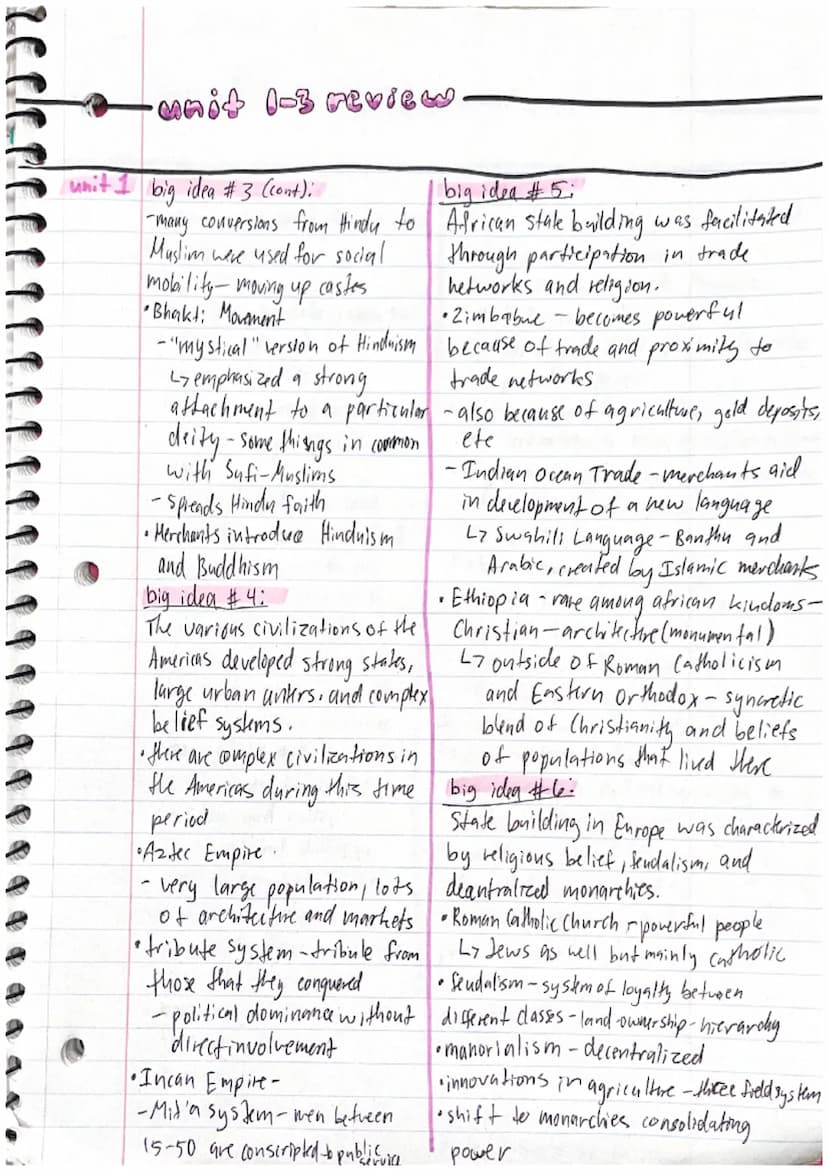 unit 1-3 review
unit 1
big idea #3 (cont):
-many conversions from Hindu to
Muslim were used for social
mobility - moving up castes
•Bhakti Movement
-"mystical" version of Hinduism
↳ emphasized a strong
attachment to a particular
deity - some things in common
with Sufi-Muslims
- spreads Hindu faith
• Merchants introduce Hinduism
and Buddhism
big idea #4:
The various civilizations of the
Americas developed strong states,
large urban centers, and complex
belief systems.
• there are complex civilizations in
the Americas during this time
period
•Aztec Empire
- very large population, lots
of architecture and markets
• tribute system - tribute from
those that they conquered
- political dominance without
direct involvement
•Incan Empire -
-Mit'a system - men between
15-50 are conscripted to public service
big idea #5:
African state building was facilitated
through participation in trade
networks and religion.
• Zimbabwe - becomes powerful
because of trade and proximity to
trade networks
- also because of agriculture, gold deposits,
etc
- Indian Ocean Trade - merchants aid
in development of a new language
↳ Swahili Language - Banthu and
Arabic, created by Islamic merchants
• Ethiopia - rare among african kindoms -
Christian - architectre (monumental)
↳ outside of Roman Catholicism
and Eastern Orthodox - syncretic
blend of Christianity and beliefs
of populations that lived there
big idea #6:
State building in Europe was characterized
by religious belief, feudalism, and
decentralized monarchies.
• Roman Catholic Church - powerful people
↳ Jews as well but mainly catholic
• feudalism - system of loyalty between
different classes - land-ownership - hierarchy
•manorialism - decentralized
•innovations in agriculture - three field system
•shift to monarchies consolidating
power